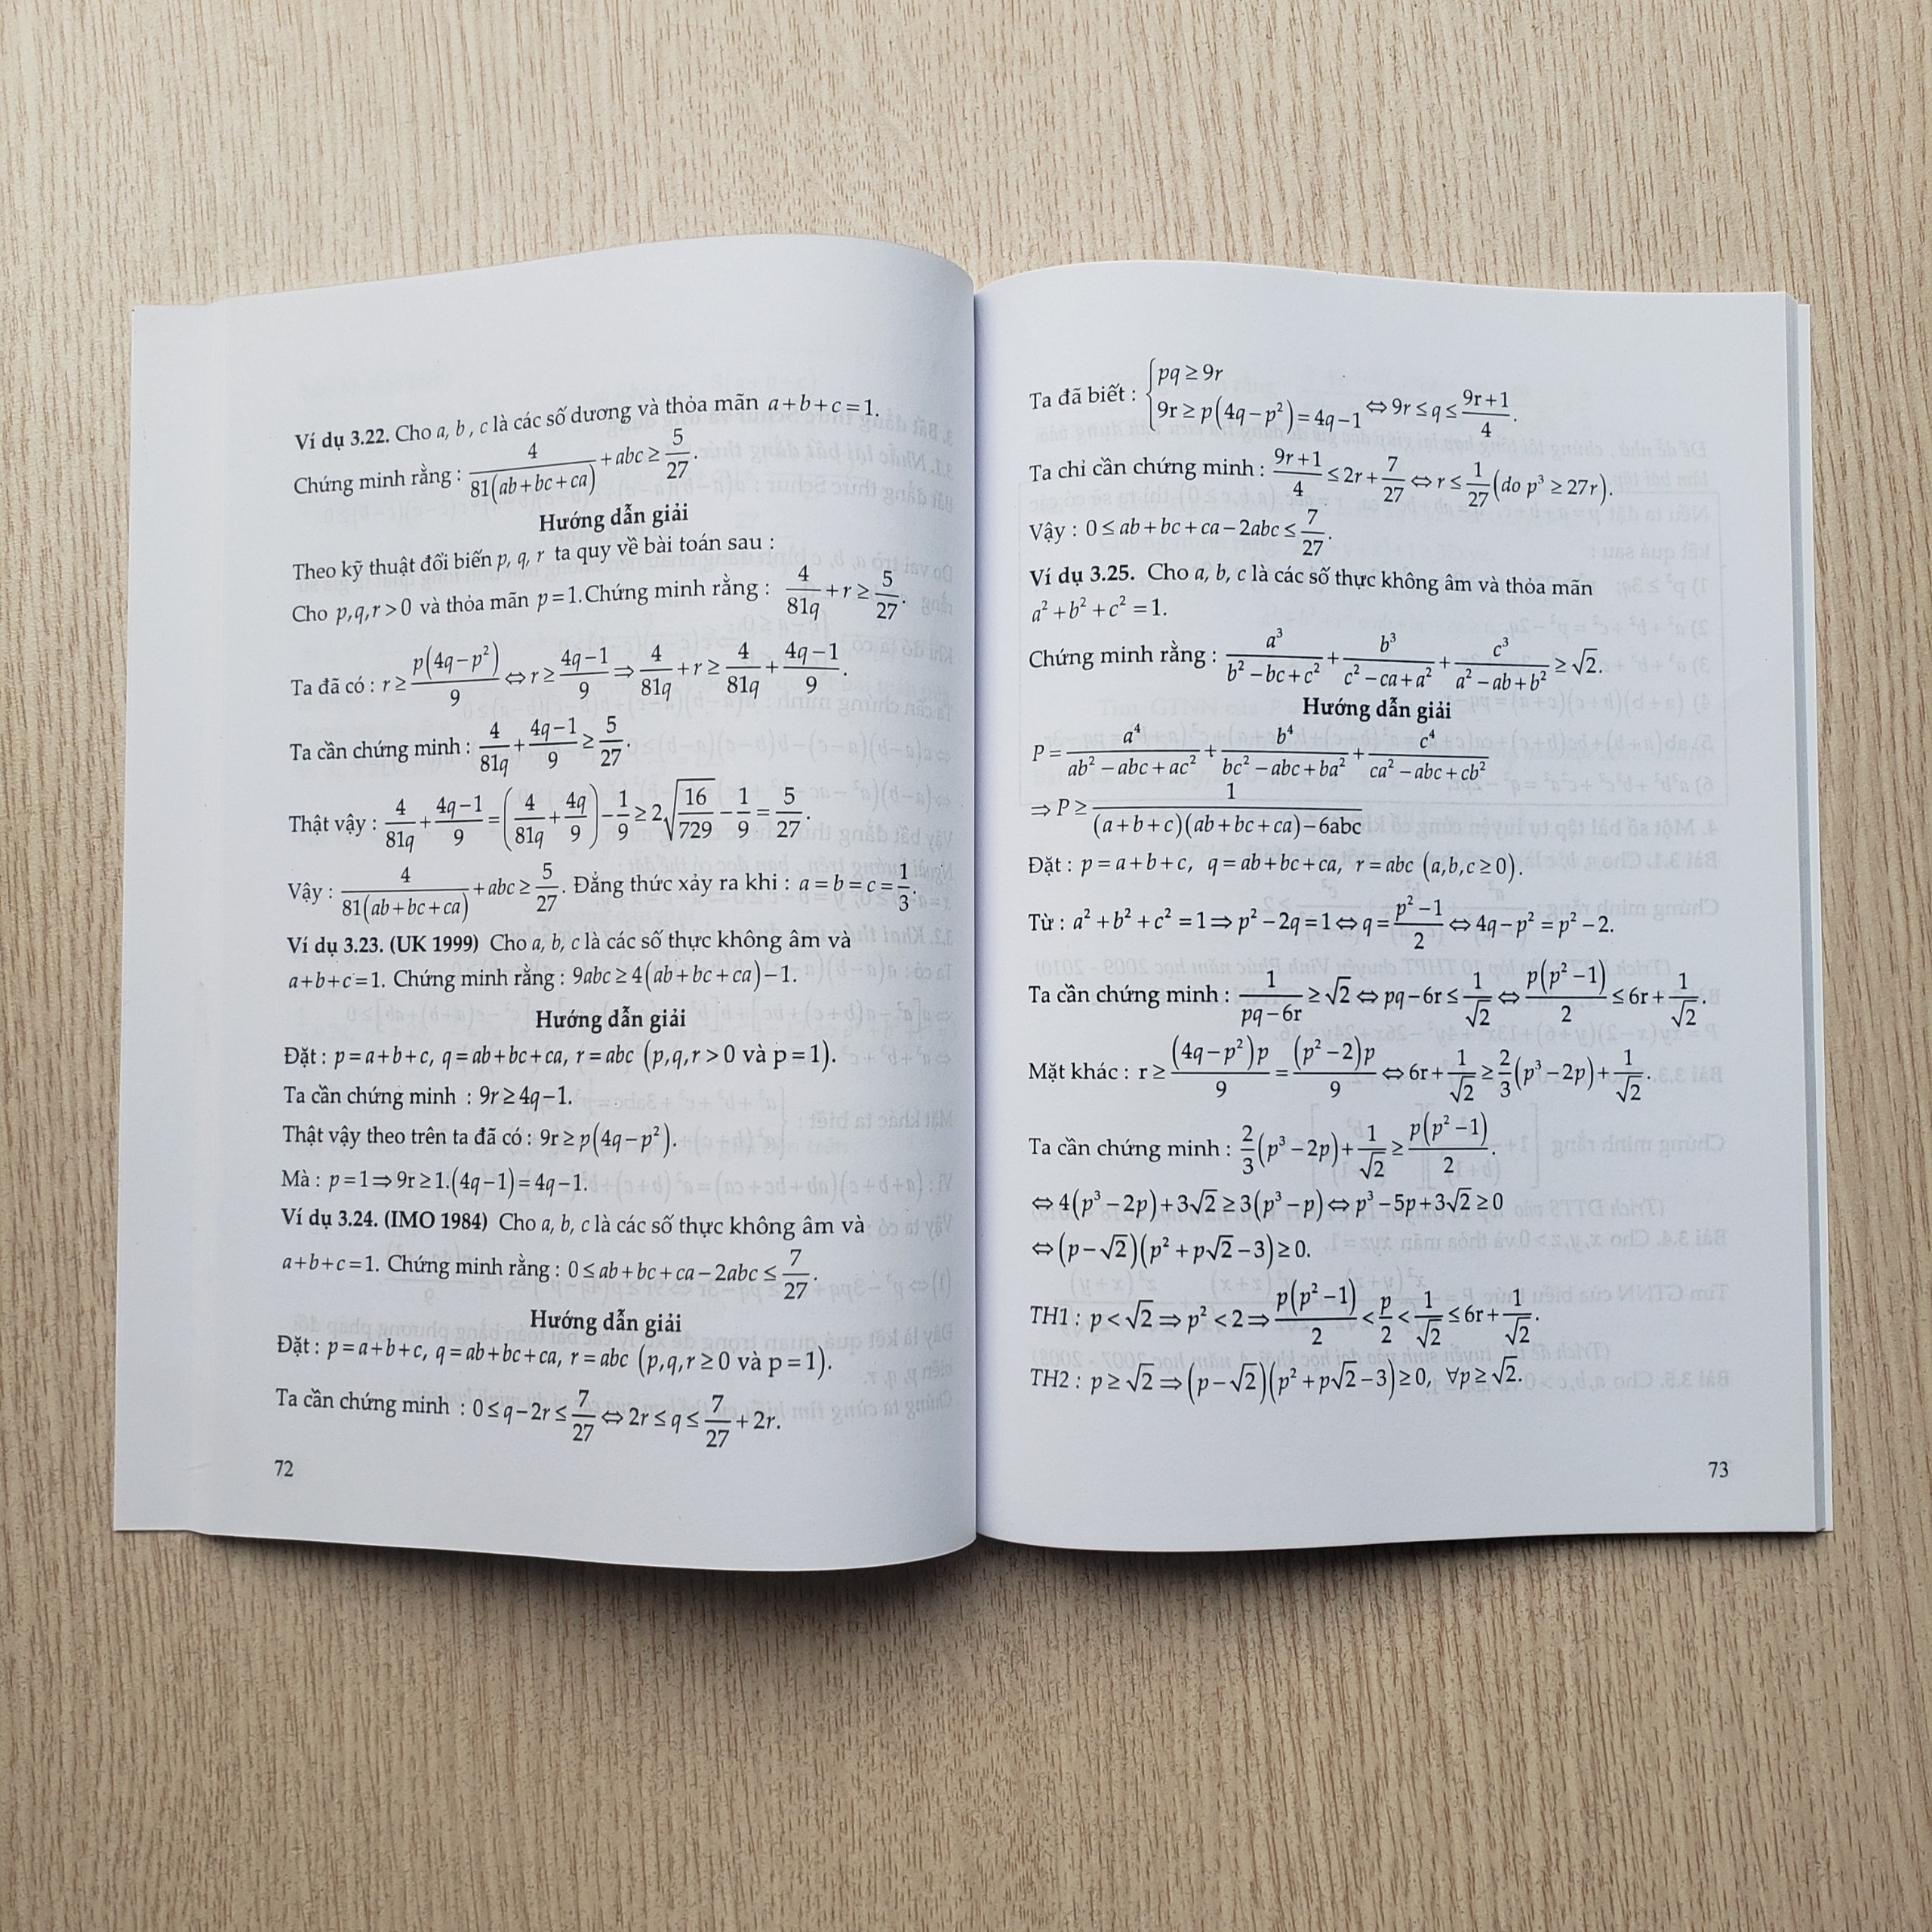 Ví dụ 3.22. Cho a, b, c là các số dương và thỏa mãn a+b+c=1.
Chứng minh rằng : 4/(81(ab+bc+ca)) + abc ≥ 5/27.
Hướng dẫn giải
Theo kỹ thuật đổi biến p, q, r ta quy về bài toán sau :
Cho p,q,r>0 và thỏa mãn p=1.Chứng minh rằng : 4/(81q) + r ≥ 5/27.
Ta đã có : r ≥ p(4q−p²)/9 ⇔ r ≥ (4q−1)/9 ⇒ 4/(81q) + r ≥ 4/(81q) + (4q−1)/9.
Ta cần chứng minh : 4/(81q) + (4q−1)/9 ≥ 5/27.
Thật vậy : 4/(81q) + (4q−1)/9 = (4/(81q) + 4q/9) − 1/9 ≥ 2√(16/729) − 1/9 = 5/27.
Vậy : 4/(81(ab+bc+ca)) + abc ≥ 5/27. Đẳng thức xảy ra khi : a = b = c = 1/3.
Ví dụ 3.23. (UK 1999) Cho a, b, c là các số thực không âm và
a+b+c=1. Chứng minh rằng : 9abc ≥ 4(ab+bc+ca)−1.
Hướng dẫn giải
Đặt : p=a+b+c, q=ab+bc+ca, r=abc (p,q,r>0 và p=1).
Ta cần chứng minh : 9r ≥ 4q−1.
Thật vậy theo trên ta đã có : 9r ≥ p(4q−p²).
Mà : p=1 ⇒ 9r ≥ 1.(4q−1) = 4q−1.
Ví dụ 3.24. (IMO 1984) Cho a, b, c là các số thực không âm và
a+b+c=1. Chứng minh rằng : 0 ≤ ab+bc+ca−2abc ≤ 7/27.
Hướng dẫn giải
Đặt : p=a+b+c, q=ab+bc+ca, r=abc (p,q,r≥0 và p=1).
Ta cần chứng minh : 0 ≤ q−2r ≤ 7/27 ⇔ 2r ≤ q ≤ 7/27 + 2r.
72
Ta đã biết : { pq ≥ 9r
9r ≥ p(4q−p²) = 4q−1 ⇔ 9r ≤ q ≤ (9r+1)/4.
Ta chỉ cần chứng minh : (9r+1)/4 ≤ 2r + 7/27 ⇔ r ≤ 1/27 (do p³ ≥ 27r).
Vậy : 0 ≤ ab+bc+ca−2abc ≤ 7/27.
Ví dụ 3.25. Cho a, b, c là các số thực không âm và thỏa mãn
a²+b²+c²=1.
Chứng minh rằng : a³/(b²−bc+c²) + b³/(c²−ca+a²) + c³/(a²−ab+b²) ≥ √2.
Hướng dẫn giải
P = a⁴/(ab²−abc+ac²) + b⁴/(bc²−abc+ba²) + c⁴/(ca²−abc+cb²)
⇒ P ≥ 1/((a+b+c)(ab+bc+ca)−6abc)
Đặt : p=a+b+c, q=ab+bc+ca, r=abc (a,b,c≥0).
Từ : a²+b²+c²=1 ⇒ p²−2q=1 ⇔ q = (p²−1)/2 ⇔ 4q−p² = p²−2.
Ta cần chứng minh : 1/(pq−6r) ≥ √2 ⇔ pq−6r ≤ 1/√2 ⇔ p(p²−1)/2 ≤ 6r + 1/√2.
Mặt khác : r ≥ (4q−p²)p/9 = (p²−2)p/9 ⇔ 6r + 1/√2 ≥ 2/3(p³−2p) + 1/√2.
Ta cần chứng minh : 2/3(p³−2p) + 1/√2 ≥ p(p²−1)/2.
⇔ 4(p³−2p)+3√2 ≥ 3(p³−p) ⇔ p³−5p+3√2 ≥ 0
⇔ (p−√2)(p²+p√2−3) ≥ 0.
TH1 : p<√2 ⇒ p²<2 ⇒ p(p²−1)/2 < p/2 < 1/√2 ≤ 6r + 1/√2.
TH2 : p ≥ √2 ⇒ (p−√2)(p²+p√2−3) ≥ 0, ∀p ≥ √2.
73